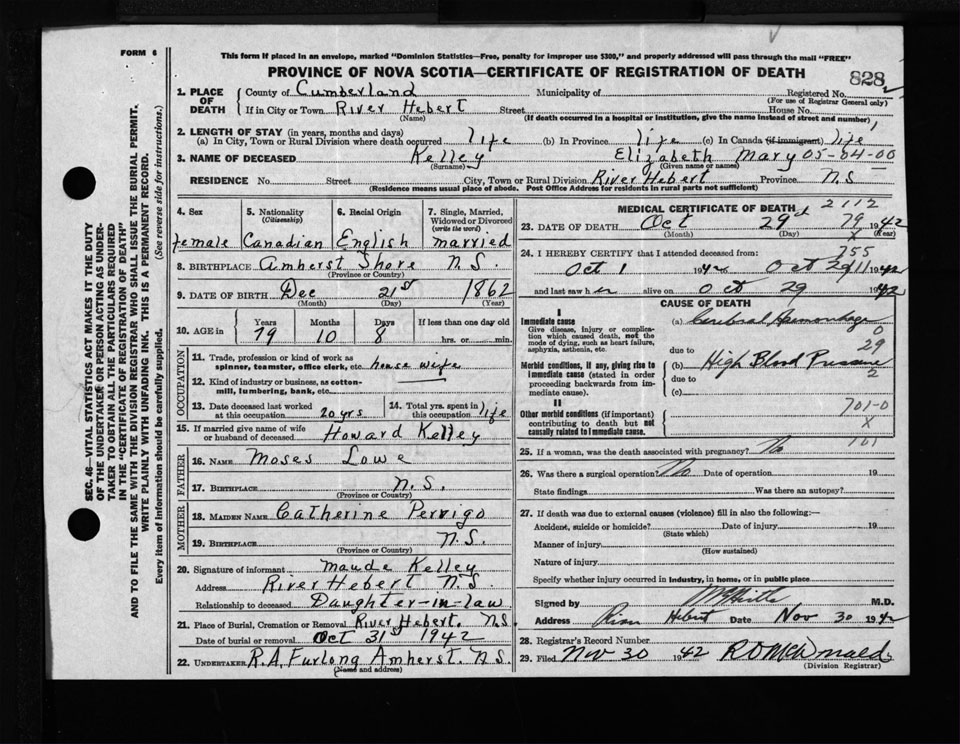 FORM 6
This form if placed in an envelope, marked "Dominion Statistics—Free, penalty for improper use $300," and properly addressed will pass through the mail "FREE"
PROVINCE OF NOVA SCOTIA—CERTIFICATE OF REGISTRATION OF DEATH
828
SEC. 46—VITAL STATISTICS ACT MAKES IT THE DUTY
OF THE UNDERTAKER OR PERSON ACTING AS UNDER-
TAKER TO OBTAIN ALL THE PARTICULARS REQUIRED
IN THE "CERTIFICATE OF REGISTRATION OF DEATH"
AND TO FILE THE SAME WITH THE DIVISION REGISTRAR WHO SHALL ISSUE THE BURIAL PERMIT.
WRITE PLAINLY WITH UNFADING INK. THIS IS A PERMANENT RECORD.
Every item of information should be carefully supplied. (See reverse side for instructions.)
1. PLACE OF DEATH
County of Cumberland Municipality of Registered No.
(For use of Registrar General only)
If in City or Town River Hebert Street House No.
(Name) (If death occurred in a hospital or institution, give the name instead of street and number)
2. LENGTH OF STAY (in years, months and days)
(a) In City, Town or Rural Division where death occurred life (b) In Province life (c) In Canada (if immigrant) life
3. NAME OF DECEASED Kelley Elizabeth Mary 05-04-00
(Surname) (Given name or names)
RESIDENCE No. Street City, Town or Rural Division River Hebert Province N.S
(Residence means usual place of abode. Post Office Address for residents in rural parts not sufficient)
4. Sex
female
5. Nationality
(Citizenship)
Canadian
6. Racial Origin
English
7. Single, Married,
Widowed or Divorced
(write the word)
married
8. BIRTHPLACE Amherst Shore N.S.
(Province or Country)
9. DATE OF BIRTH Dec 21st 1862
(Month) (Day) (Year)
10. AGE in Years Months Days If less than one day old
79 10 8 hrs. or min.
OCCUPATION
11. Trade, profession or kind of work as
spinner, teamster, office clerk, etc. house wife
12. Kind of industry or business, as cotton-
mill, lumbering, bank, etc.
13. Date deceased last worked
at this occupation 20 yrs
14. Total yrs. spent in
this occupation life
15. If married give name of wife
or husband of deceased Howard Kelley
FATHER
16. NAME Moses Lowe
17. BIRTHPLACE N.S.
(Province or Country)
MOTHER
18. MAIDEN NAME Catherine Perrigo
19. BIRTHPLACE N.S.
(Province or Country)
20. Signature of informant Maude Kelley
Address River Hebert N.S.
Relationship to deceased Daughter-in-law
21. Place of Burial, Cremation or Removal River Hebert. N.S.
Date of burial or removal Oct 31st 1942
22. UNDERTAKER R.A. Furlong Amherst. N.S.
(Name and address)
MEDICAL CERTIFICATE OF DEATH 2112
23. DATE OF DEATH Oct 29th 79 1942
(Month) (Day) (Year)
X
24. I HEREBY CERTIFY that I attended deceased from: 355
Oct 1 1942 to Oct 29 11 1942
and last saw her alive on Oct 29 1942
CAUSE OF DEATH
I
Immediate cause (a) Cerebral Haemorrhage
Give disease, injury or complica-
tion which caused death, not the
mode of dying, such as heart failure,
asphyxia, asthenia, etc.
0
29
due to
Morbid conditions, if any, giving rise to
immediate cause (stated in order
proceeding backwards from im-
mediate cause).
(b) High Blood Pressure
due to 2
(c)
II
Other morbid conditions (if important)
contributing to death but not
causally related to immediate cause.
701-0
X
101
25. If a woman, was the death associated with pregnancy? No
26. Was there a surgical operation? No Date of operation 19
State findings Was there an autopsy?
27. If death was due to external causes (violence) fill in also the following:—
Accident, suicide or homicide? Date of injury 19
(State which)
Manner of injury
(How sustained)
Nature of injury
Specify whether injury occurred in industry, in home, or in public place
Signed by M.D.
Address River Hebert Date Nov 30 1942
28. Registrar's Record Number
29. Filed Nov 30 1942
(Division Registrar)